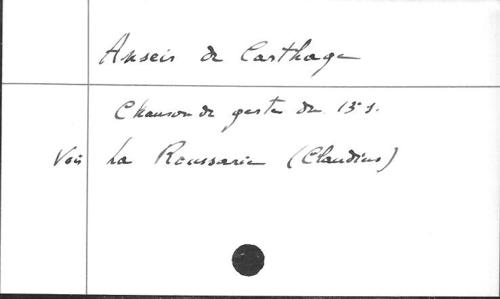 Anseis de Carthage
Chanson de geste du 13e s.
Voir La Roussarie (Claudius)